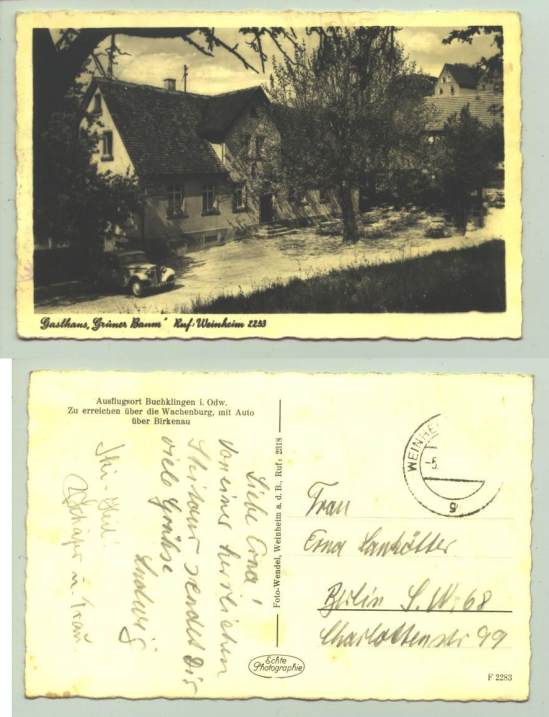 Gasthaus „Grüner Baum" Ruf: Weinheim 2253
Ausflugsort Buchklingen i. Odw.
Zu erreichen über die Wachenburg, mit Auto
über Birkenau
Liebe Erna!
Von einer herrlichen
Skitour sendet Dir
viele Grüsse
Ludwig
Ski-Heil!
Schäfer u. Frau
Foto-Wendel, Weinheim a. d. B., Ruf: 2318
Echte
Photographie
WEINHE
g
Frau
Erna Lankötter
Berlin S.W. 68
Charlottenstr 99
F 2283